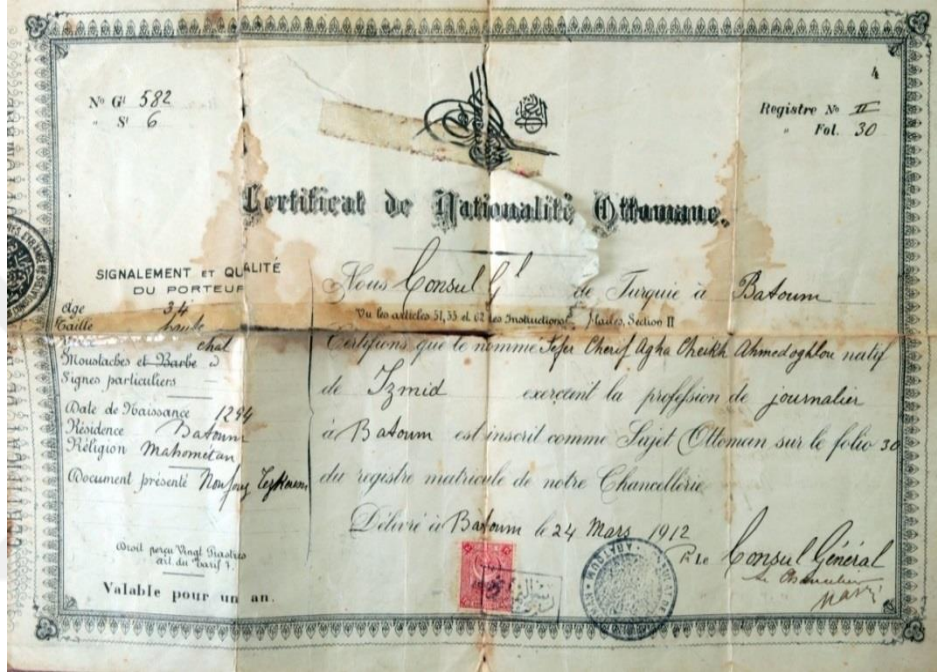 4
Nº Gˡ 582
" Sˡ 6
Registre Nº II
" Fol. 30
Certificat de Nationalité Ottomane.
SIGNALEMENT ET QUALITÉ
DU PORTEUR
Age 34
Taille haute
chat
Moustaches et Barbe d
Signes particuliers
Date de Naissance 1294
Résidence Batoum
Réligion Mahométan
Document présenté
Droit perçu Vingt Piastres
art. du Tarif 7.
Valable pour un an.
Nous Consul Gˡ de Turquie à Batoum
Vu les articles 51, 53 et 62 des Instructions Section II
Certifions que le nommé Cherif Agha Cheikh Ahmedoghlou natif
de Izmid exerçant la profession de journalier
à Batoum est inscrit comme Sujet Ottoman sur le folio 30
du registre matricule de notre Chancellerie
Délivré à Batoum le 24 Mars 1912
P. Le Consul Général
Le Chancelier